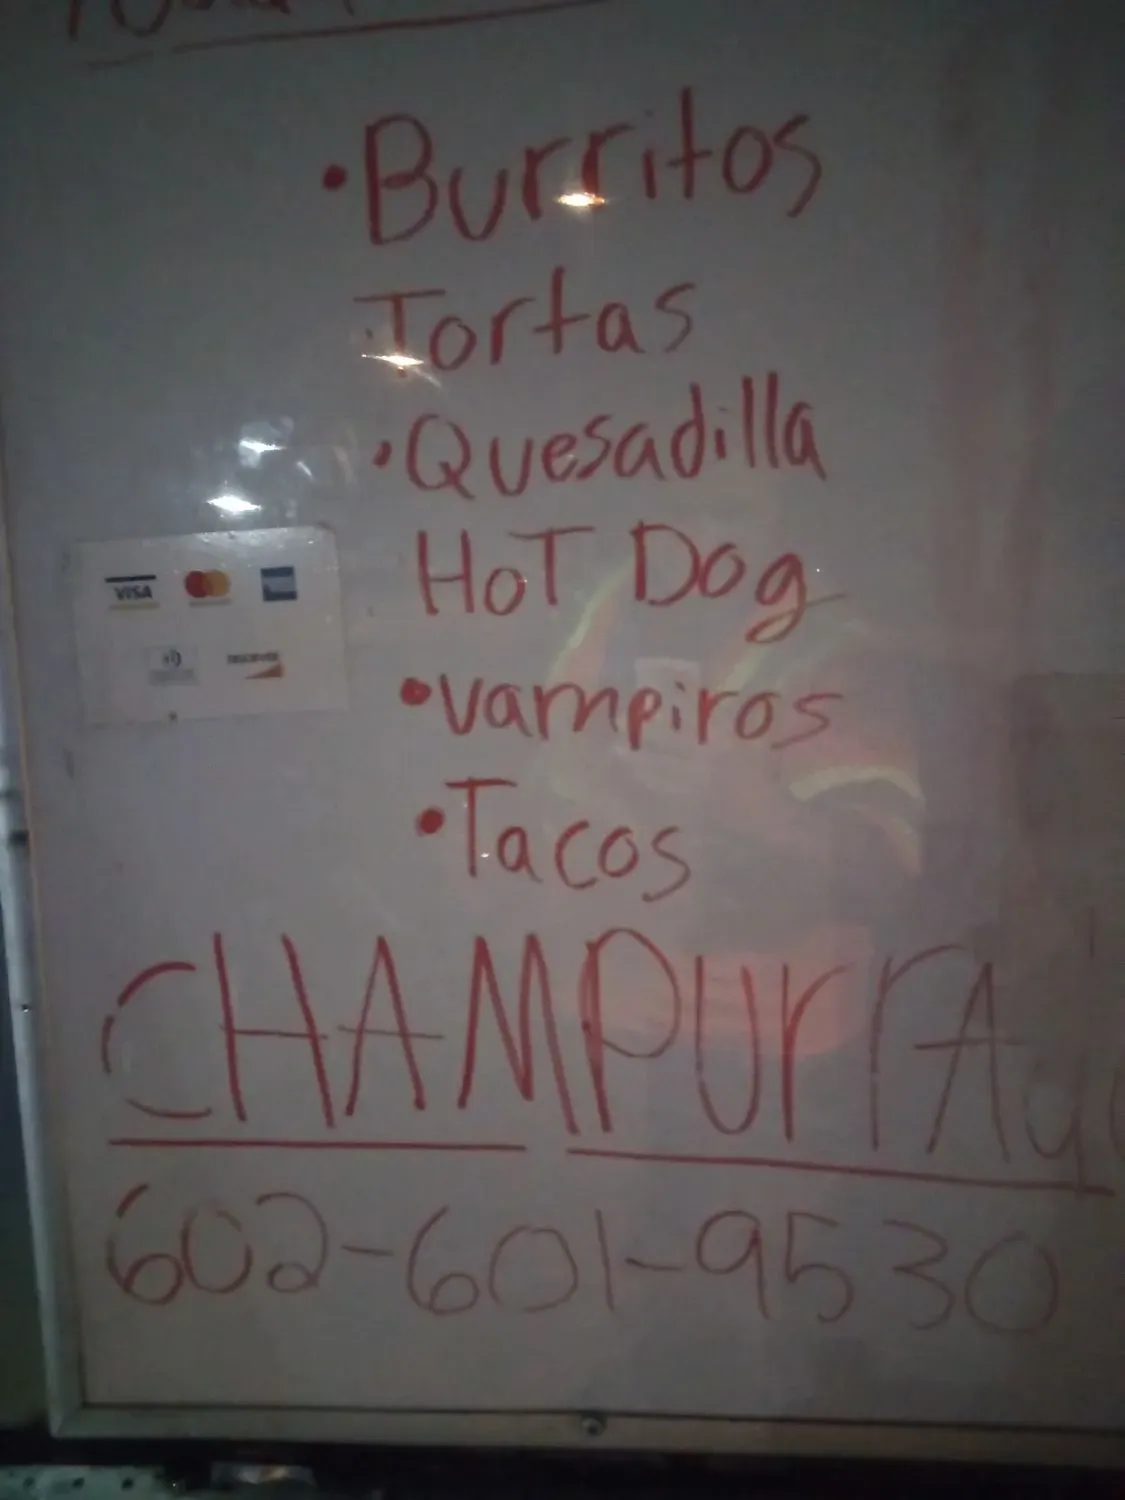 •Burritos
•Tortas
•Quesadilla
HoT Dog
•vampiros
•Tacos
CHAMPUrrAd
602-601-9530
VISA
DISCOVER